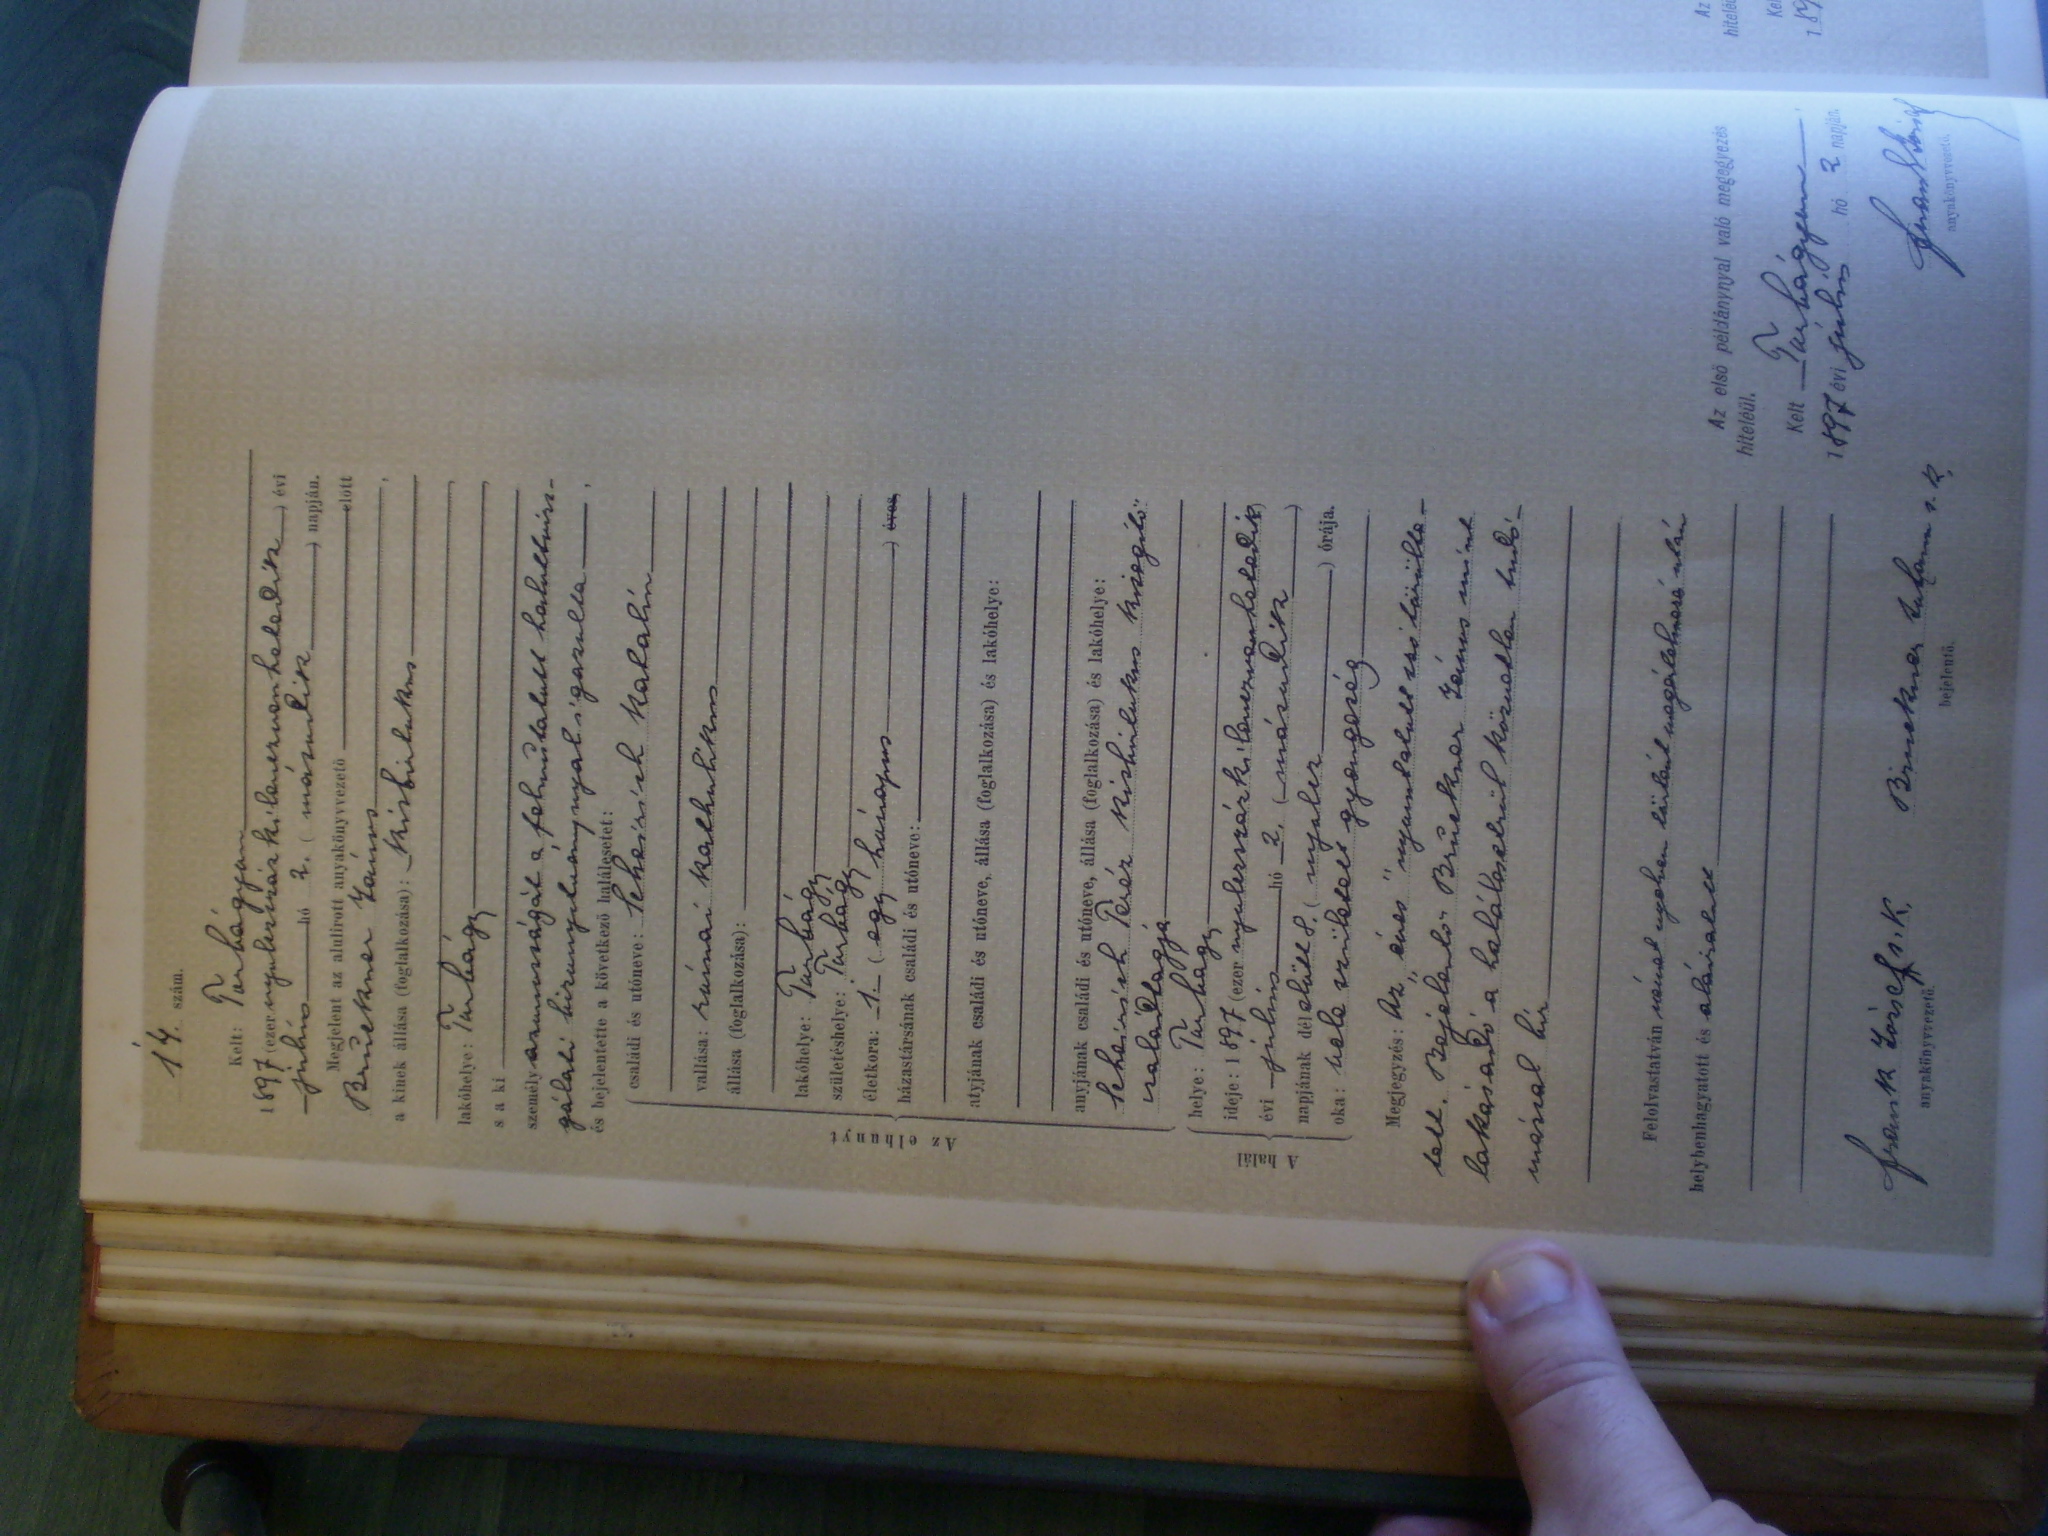 14. szám.
Kelt: Torbágyon
1897 (ezernyolczszázkilenczvenhetedik) évi
július hó 2. (második) napján.
Megjelent az alulirott anyakönyvvezető előtt
Brückner János,
a kinek állása (foglalkozása): kisbirtokos
lakóhelye: Torbágy,
s a ki
személyazonosságát a felmutatott halottvizs-
gálati bizonyitványnyal igazolta,
és bejelentette a következő halálesetet:
Az elhunyt
családi és utóneve: Katalin
vallása: római katholikus
állása (foglalkozása):
lakóhelye: Torbágy
születéshelye: Torbágy
életkora: 1 (egy hónapos) éves
házastársának családi és utóneve:
atyjának családi és utóneve, állása (foglalkozása) és lakóhelye:
anyjának családi és utóneve, állása (foglalkozása) és lakóhelye:
Teréz kisbirtokos kisegítő
családtagja
A halál
helye: Torbágy
ideje: 1897 (ezernyolczszázkilenczvenhetedik)
évi július hó 2. (második)
napjának délelőtt 8. (nyolcz) órája.
oka: vele született gyengeség
Megjegyzés: Az "éves" nyomtatott szó törölte-
tett. Bejelentő Brückner János mint
lakásadó a halálesetről közvetlen tudo-
mással bir
Felolvastatván német nyelven történt megmagyarázás után
helybenhagyatott és aláiratott
Frank József s. k.
anyakönyvvezető.
Brückner Johann s. k.
bejelentő.
Az első példánynyal való megegyezés
hiteléül.
Kelt Torbágyon
1897 évi július hó 2 napján.
Frank József
anyakönyvvezető.
Az
Kel
189